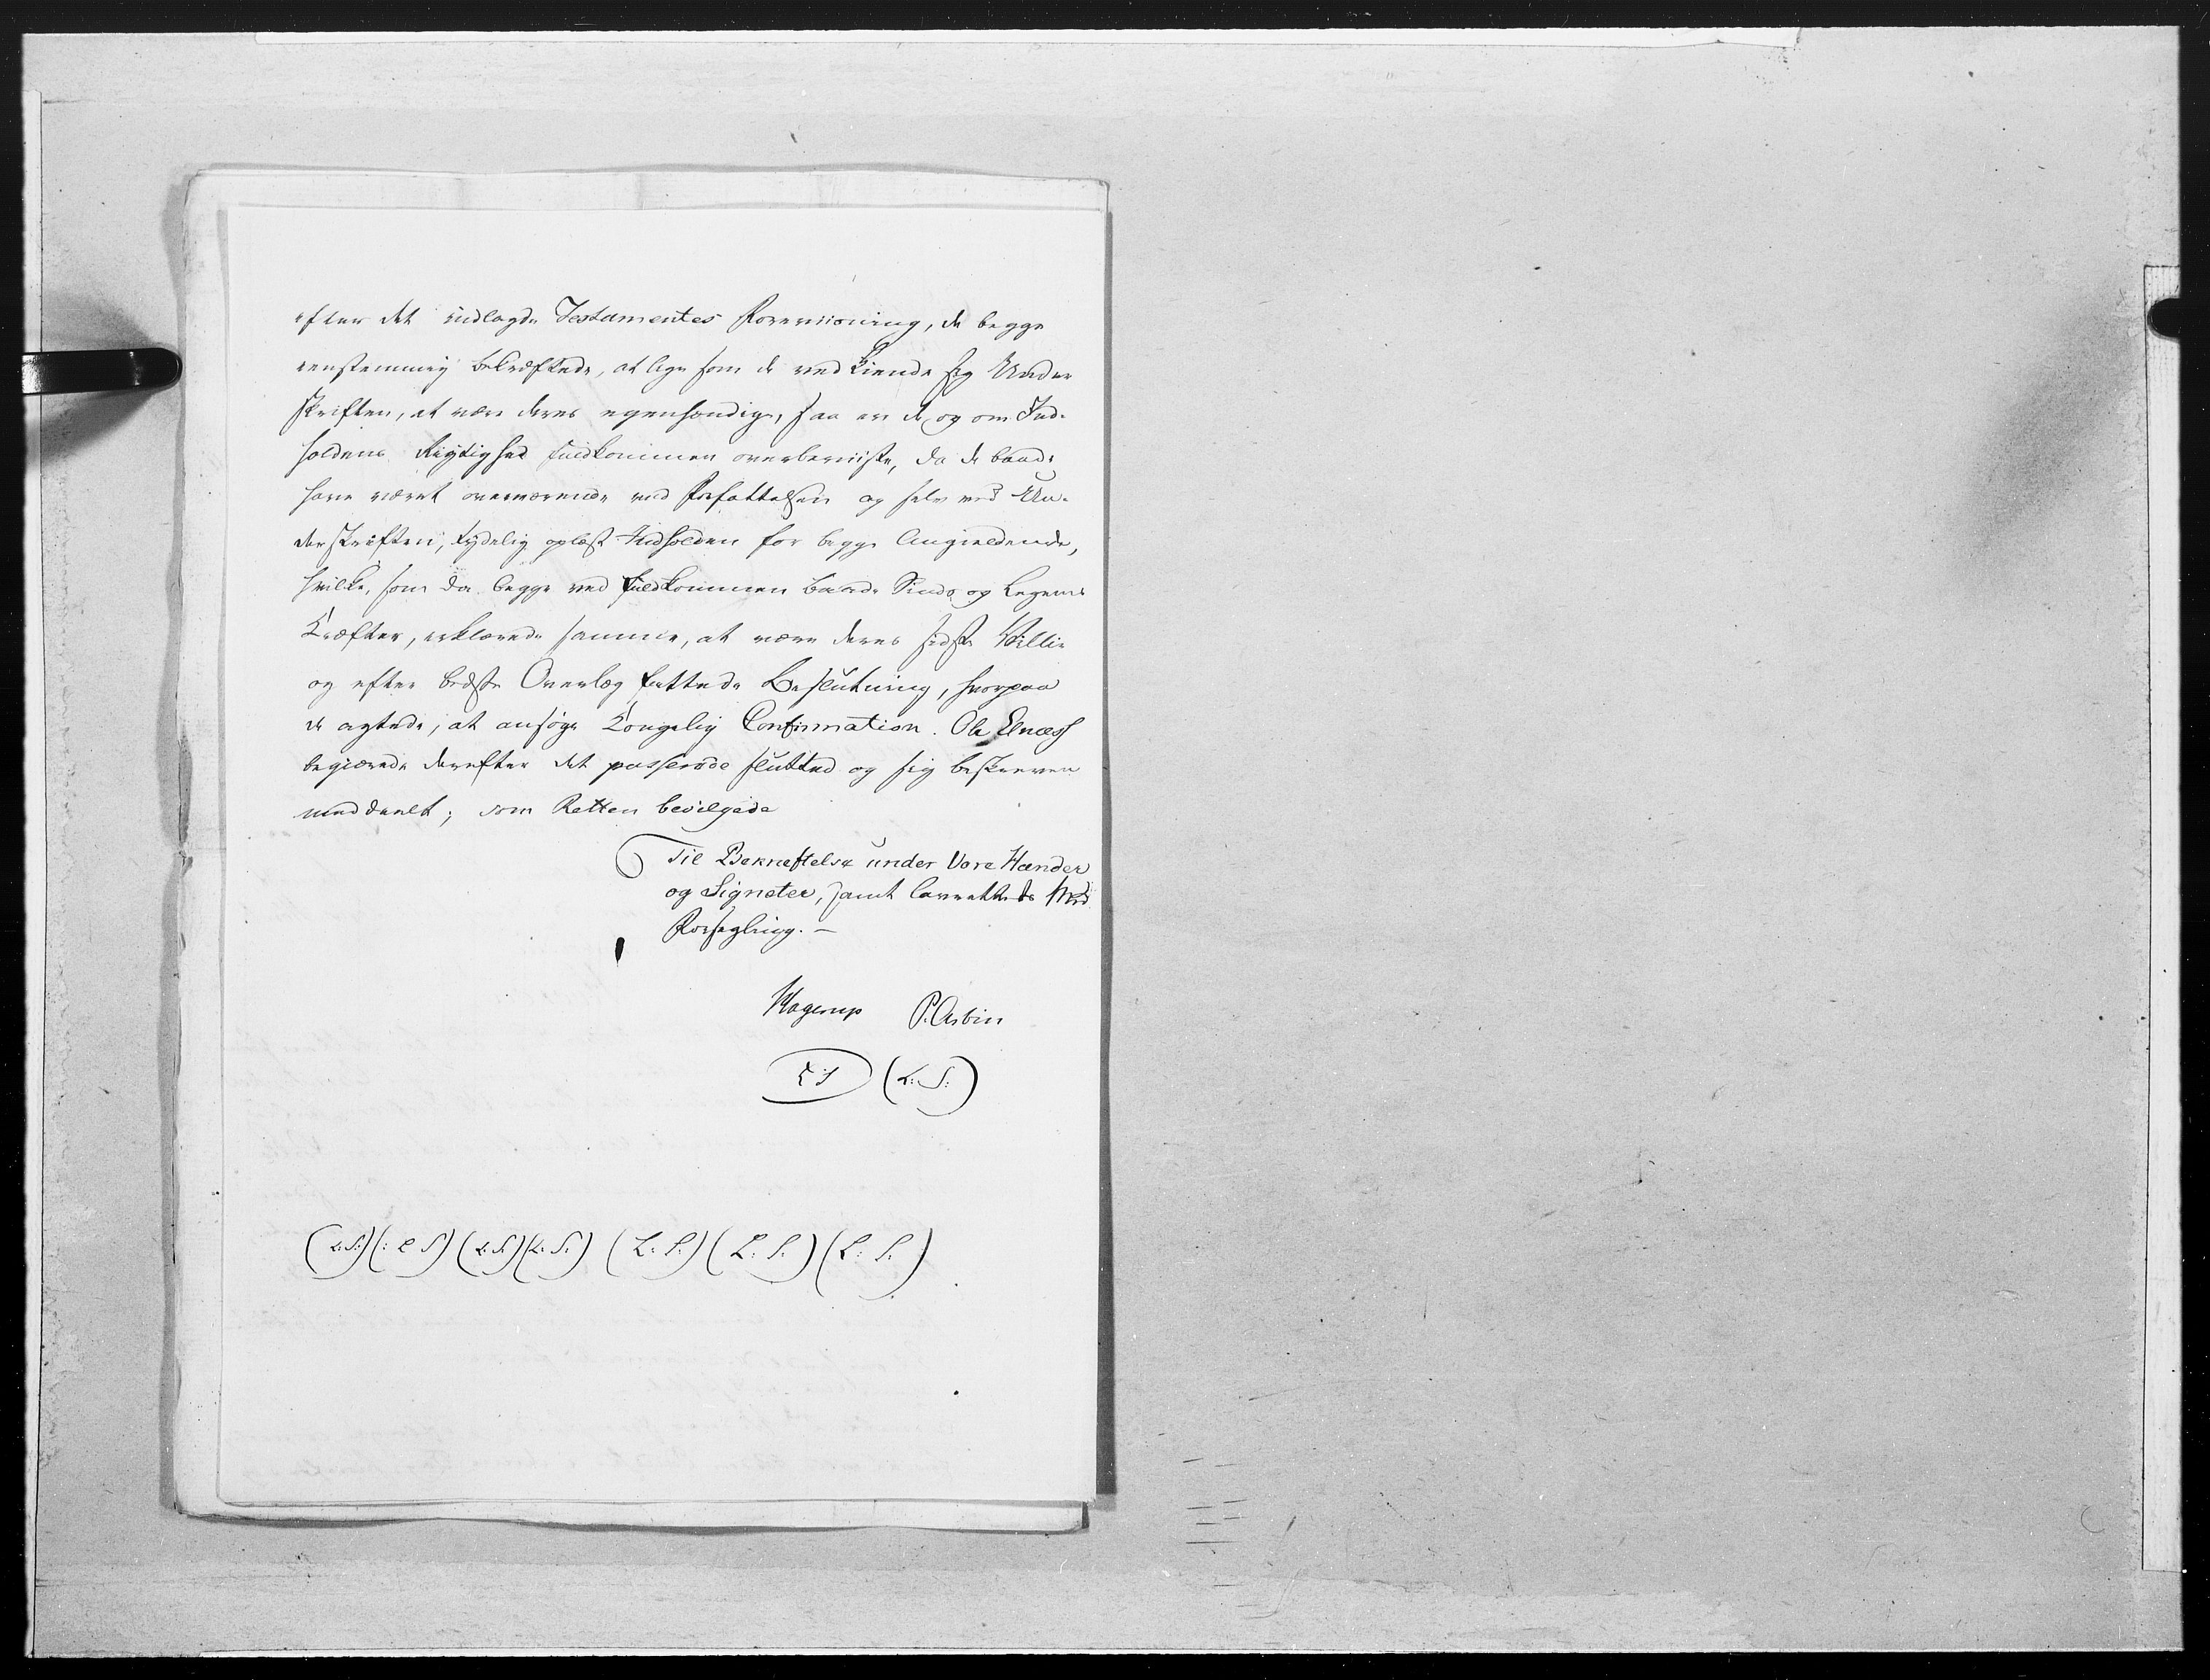 efter det indlagde Testamentes Foreviisning, de begge
eenstemmig bekræftede, at lige som de vedkiende sig Under
skriften, at være deres egenhændige, saa ere de og om Ind-
holdens Rigtighed fuldkommen overbeviiste, da de baade
have været overværende ved Forfattelsen og selv ved Un-
derskriften, tydelig oplæst Indholden for begge Angieldende,
hvilke, som da begge ved fuldkommen baade Sinds og Legems
Kræfter, erklærede samme, at være deres sidste Villie
og efter bedste Overlæg fattede Beslutning, hvorpaa
de agtede, at ansøge Kongelig Confirmation. Ole Elnæss
begiærede derefter det passerede slutted og sig beskreven
meddeelt; som Retten bevilgede
Til Bekræftelse under Vore Hænder
og Signeter, samt Lavrettets Med
Forsegling. —
Hagerup P. Arbin
LS (L: S:)
(L:S:) (: L S) (L:S:) (L: S:) (L: S:) (L: S:) (L: S:)